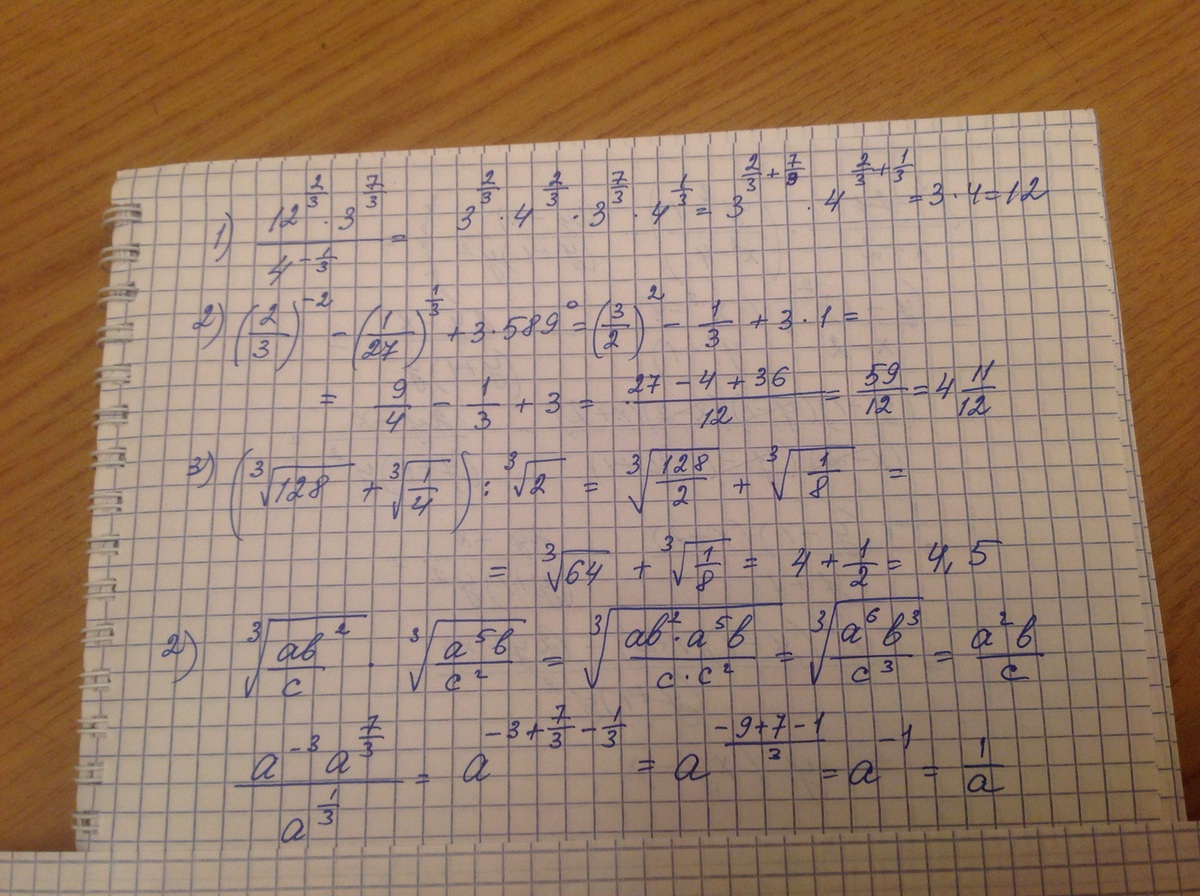 1) (12^(2/3) · 3^(7/3)) / 4^(-1/3) = 3^(2/3) · 4^(2/3) · 3^(7/3) · 4^(1/3) = 3^(2/3 + 7/3) · 4^(2/3 + 1/3) = 3 · 4 = 12
2) (2/3)^(-2) - (1/27)^(1/3) + 3 · 589^0 = (3/2)^2 - 1/3 + 3 · 1 =
= 9/4 - 1/3 + 3 = (27 - 4 + 36)/12 = 59/12 = 4 11/12
3) (∛128 + ∛(1/4)) : ∛2 = ∛(128/2) + ∛(1/8) =
= ∛64 + ∛(1/8) = 4 + 1/2 = 4,5
2) ∛(ab^2/c) · ∛(a^5b/c^2) = ∛((ab^2 · a^5b)/(c · c^2)) = ∛(a^6b^3/c^3) = a^2b/c
(a^(-3) a^(7/3)) / a^(1/3) = a^(-3 + 7/3 - 1/3) = a^((-9+7-1)/3) = a^(-1) = 1/a